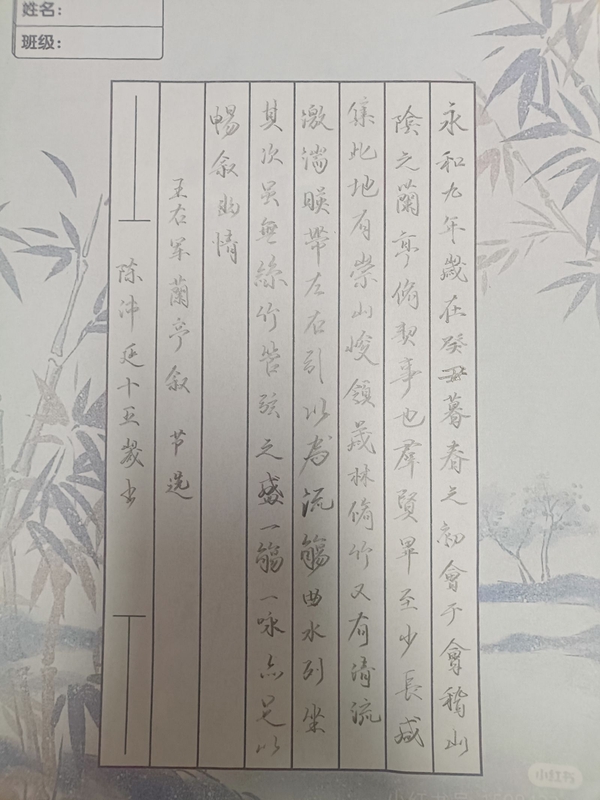 姓名：
班级：
永和九年歲在癸丑暮春之初會于會稽山
陰之蘭亭脩契事也羣賢畢至少長咸
集此地有崇山峻領茂林脩竹又有清流
激湍暎帶左右引以為流觴曲水列坐
其次雖無絲竹管弦之盛一觴一咏亦足以
暢叙幽情
王右軍蘭亭叙 节选
陈沛廷十五歲书
小红书